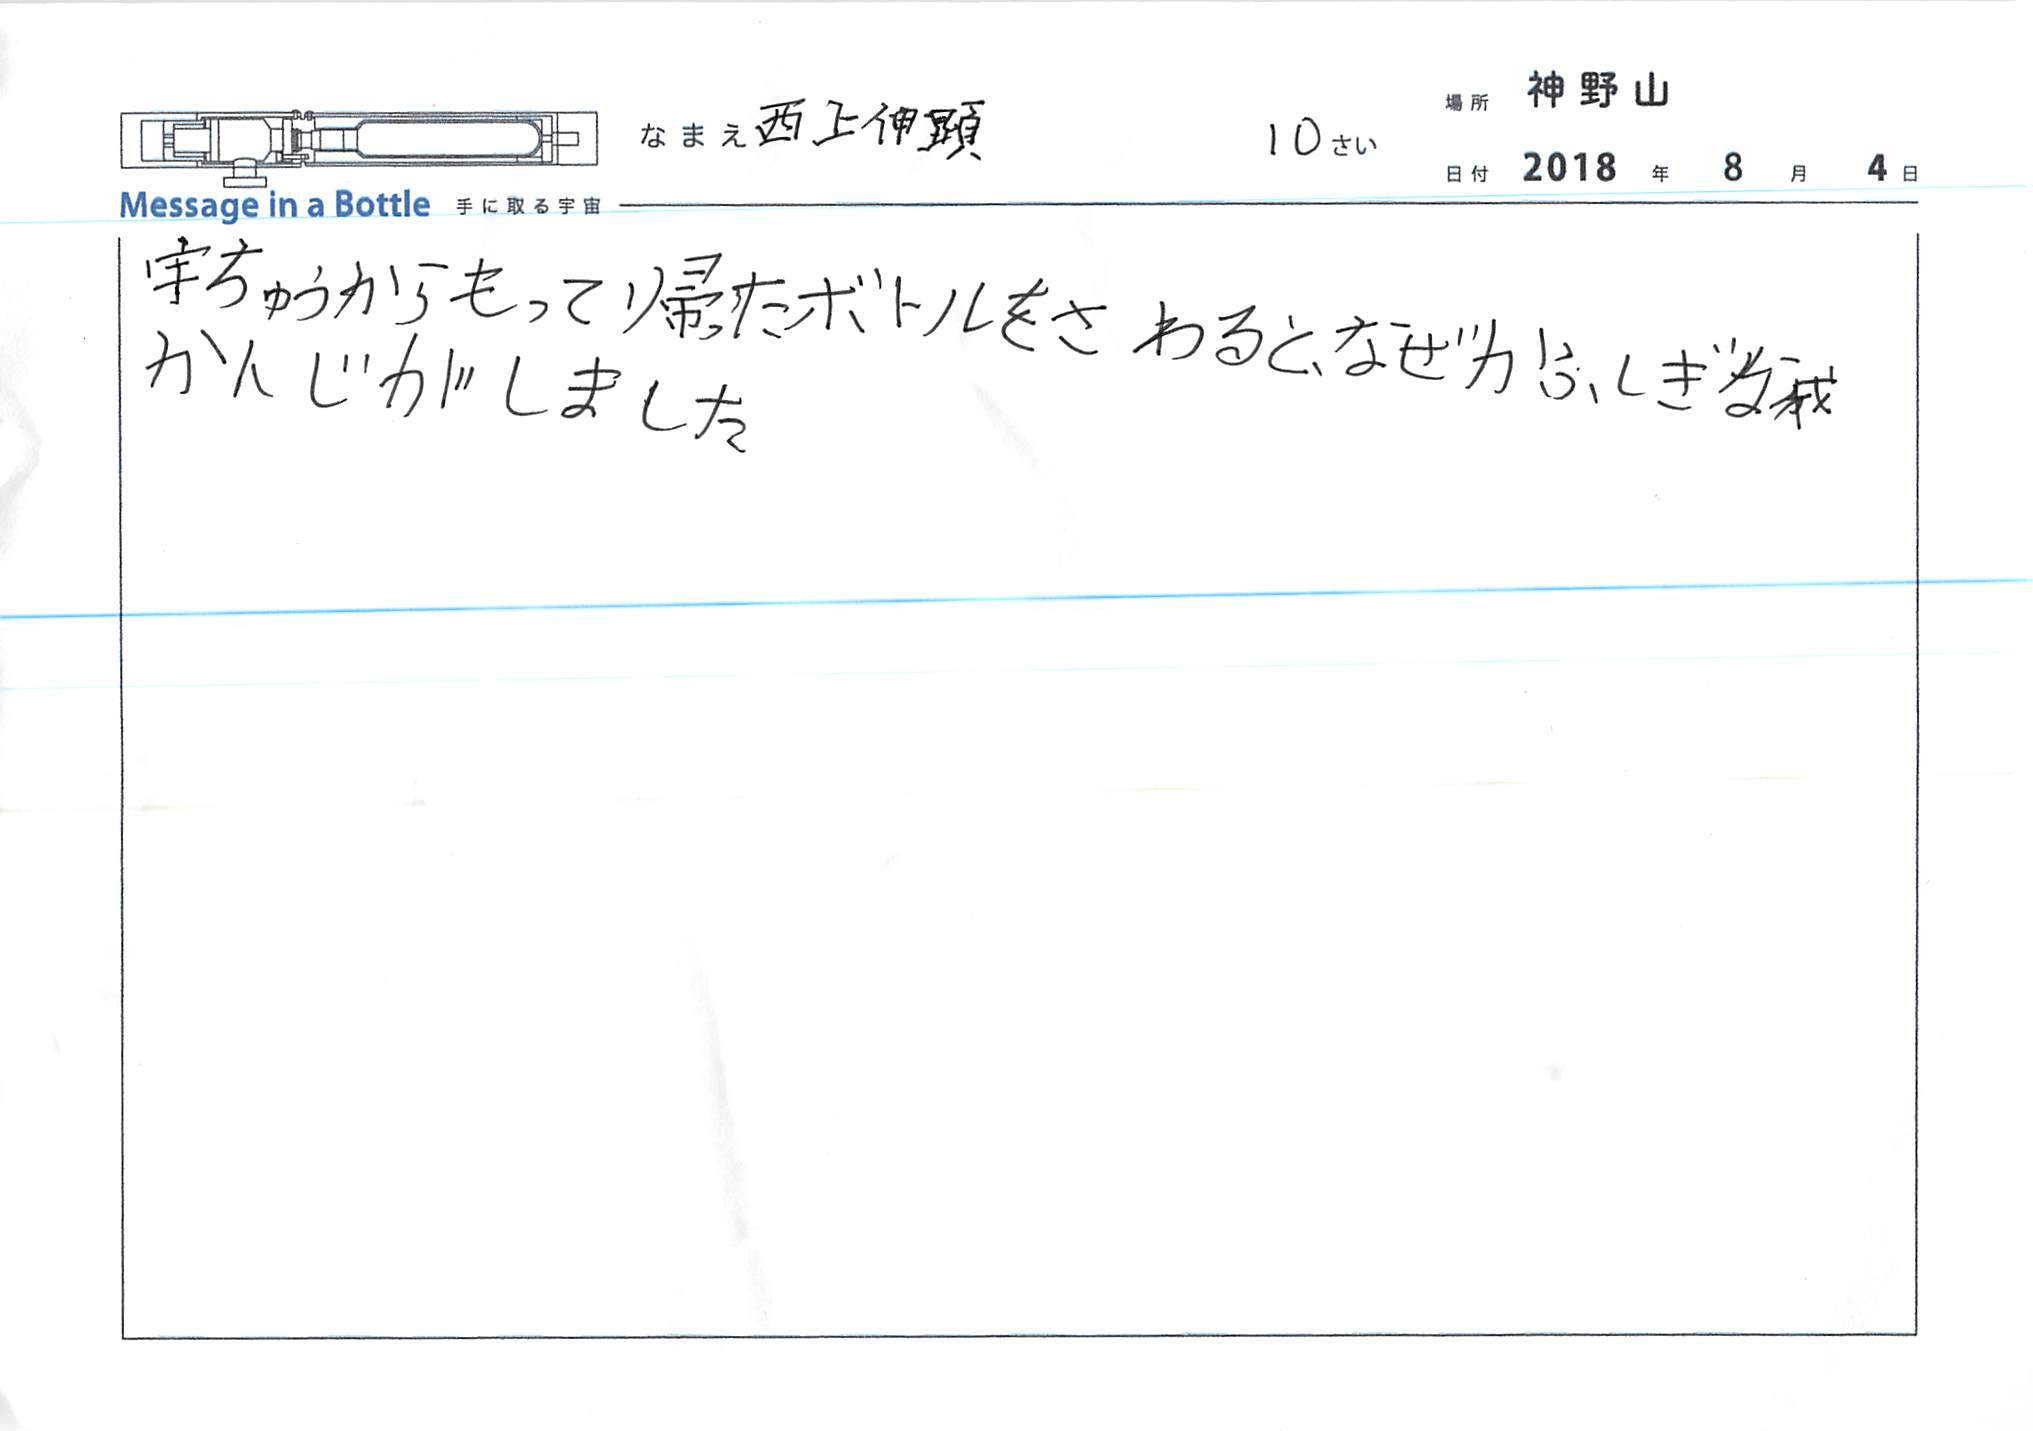 なまえ 西上伸顕 10さい 場所 神野山
日付 2018 年 8 月 4 日
Message in a Bottle 手に取る宇宙
宇ちゅうからもって帰ったボトルをさわると、なぜかふしぎな
かんじがしました